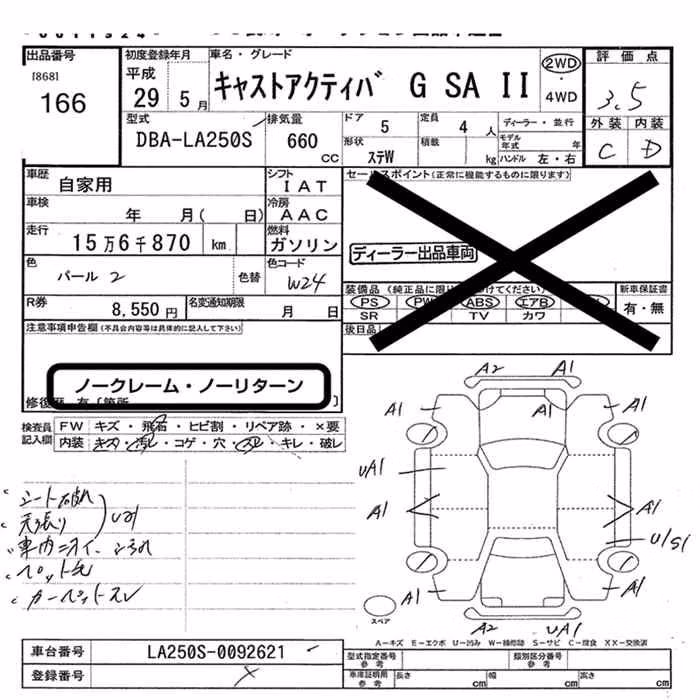 出品番号
18681
166
初度登録年月
平成
29 5 月
車名・グレード
キャストアクティバ G SA II
2WD
・
4WD
評 価 点
3.5
外装 内装
C D
型式
DBA-LA250S
排気量
660
CC
ドア
5
定員
4 人
形状
ステW
積載
kg
ディーラー・並行
モデル
年式 年
ハンドル 左・右
車歴
自家用
シフト
I A T
車検
年 月( 日)
冷房
A A C
走行
15 万 6 千 870 km
燃料
ガソリン
色
パール 2
色替
色コード
W24
R券
8,550 円
名変通知期限
月 日
セールスポイント(正常に機能するものに限ります)
ディーラー出品車両
装備品
(純正品に限り
けてください)
PS PW ABS エアB
SR TV カワ
新車保証書
有・無
後日品
注意事項申告欄(不具合内容等は具体的に記入して下さい)
ノークレーム・ノーリターン
修復歴
検査員
記入欄
FW キズ・飛石・ヒビ割・リペア跡・×要
内装 キズ・汚レ・コゲ・穴・スレ・キレ・破レ
シート破れ
天張り
車内ニオイ、
ペット毛
カーペットスレ
A2 A1
A1 A1 A1
UA1
A1 A1
U/S1
A1 A1
A2 UA1
スペア
A-キズ E-エクボ U-凹み W-補修跡 S-サビ C-腐食 XX-交換済
車台番号
LA250S-0092621
登録番号
型式指定番号
参考
類別区分番号
参考
車庫証明用
参考
長さ cm 幅 cm 高さ cm